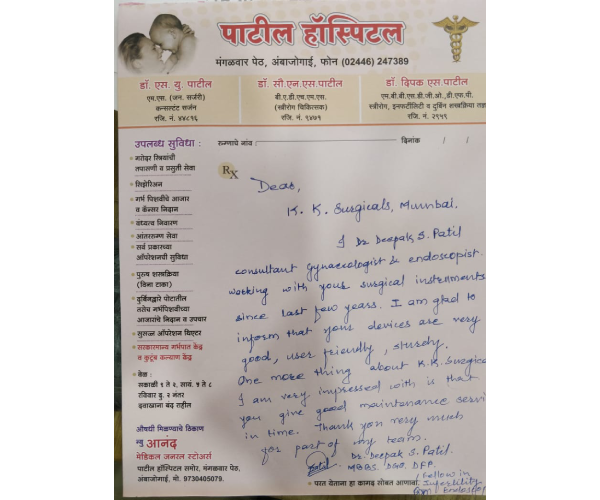 पाटील हॉस्पिटल
मंगळवार पेठ, अंबाजोगाई, फोन (02446) 247389
डॉ. एस. यु. पाटील
एम.एस. (जन. सर्जरी)
कन्सल्टंट सर्जन
रजि. नं. ४४८१६
डॉ. सौ.एन.एस.पाटील
बी.ए.डी.एच.एम.एस.
(स्त्रीरोग चिकित्सक)
रजि. नं. ९४७१
डॉ. दिपक एस.पाटील
एम.बी.बी.एस.डी.जी.ओ.,डी.एफ.पी.
स्त्रीरोग, इनफर्टीलिटी व दुर्बिण शस्त्रक्रिया तज्ञ
रजि. नं. २९५९
उपलब्ध सुविधा :
रुग्णाचे नांव :
दिनांक / /
Rx
गरोदर स्त्रियांची
तपासणी व प्रसुती सेवा
सिझेरिअन
गर्भ पिशवीचे आजार
व कॅन्सर निदान
वंध्यत्व निवारण
आंतररुग्ण सेवा
सर्व प्रकारच्या
ऑपरेशनची सुविधा
पुरुष शस्त्रक्रिया
(बिना टाका)
दुर्बिणद्वारे पोटातील
तसेच गर्भपिशवीच्या
आजारांचे निदान व उपचार
सुसज्ज ऑपरेशन थिएटर
सरकारमान्य गर्भपात केंद्र
व कुटुंब कल्याण केंद्र
वेळ :
सकाळी ९ ते २, सायं. ५ ते ८
रविवार दु. २ नंतर
दवाखाना बंद राहील
औषधी मिळण्याचे ठिकाण
न्यु आनंद
मेडिकल जनरल स्टोअर्स
पाटील हॉस्पिटल समोर, मंगळवार पेठ,
अंबाजोगाई. मो. 9730405079.
Dear,
K. K. Surgicals, Mumbai.
I Dr. Deepak S. Patil
consultant Gynaecologist & endoscopist.
working with your surgical instruments
since last few years. I am glad to
inform that your devices are very
good, user friendly, sturdy.
One more thing about K.K. Surgica
I am very impressed with is that
you give good maintenance servi
in time. Thank you very much
for part of my team.
Dr. Deepak S. Patil.
MBBS. DGO. DFP.
Fellow in
Infertility
Endoscop
परत येताना हा कागद सोबत आणावा.